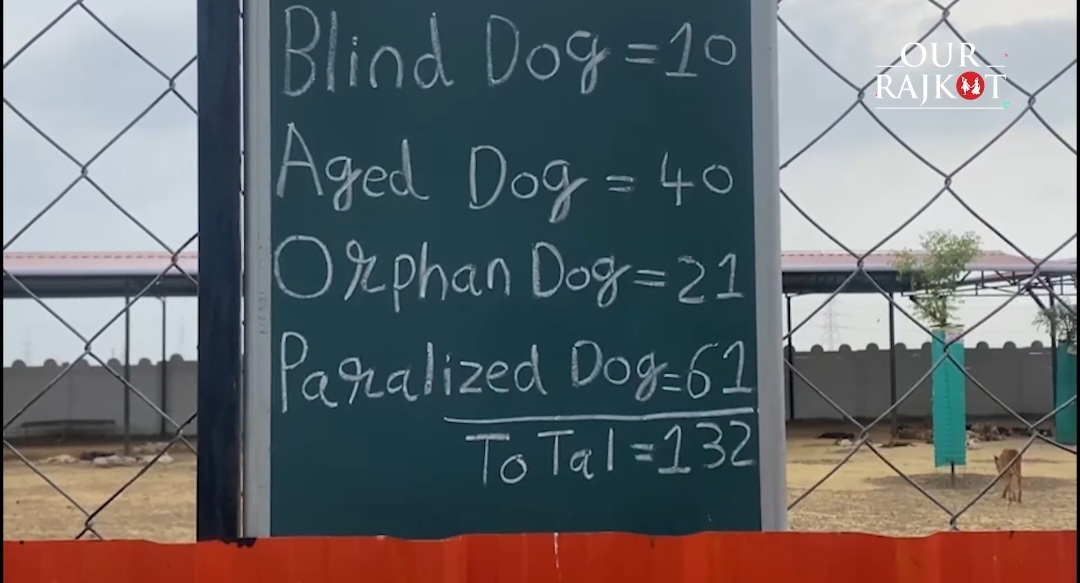 Blind Dog = 10
Aged Dog = 40
Orphan Dog = 21
Paralized Dog = 61
ToTal = 132
OUR
RAJKOT